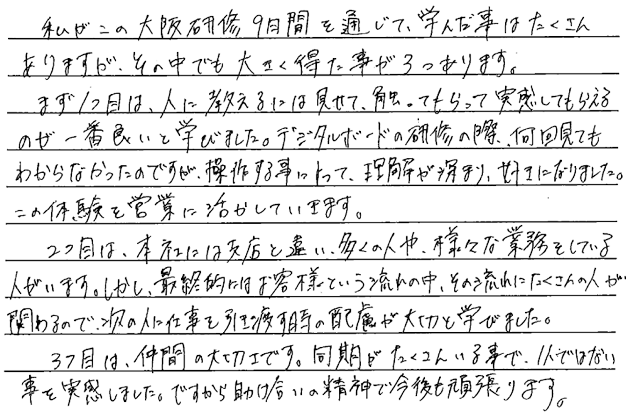 私がこの大阪研修9日間を通じて、学んだ事はたくさん
ありますが、その中でも大きく得た事が3つあります。
まず1つ目は、人に教えるには見せて、触ってもらって実感してもらえる
のが一番良いと学びました。デジタルボードの研修の際、何回見ても
わからなかったのですが、操作する事によって、理解が深まり、好きになりました。
この体験を営業に活かしていきます。
2つ目は、本社には支店と違い、多くの人や、様々な業務をしている
人がいます。しかし、最終的にはお客様という流れの中、その流れにたくさんの人が
関わるので、次の人に仕事を引き渡す時の配慮が大切と学びました。
3つ目は、仲間の大切さです。同期がたくさんいる事で、1人ではない
事を実感しました。ですから助け合いの精神で今後も頑張ります。